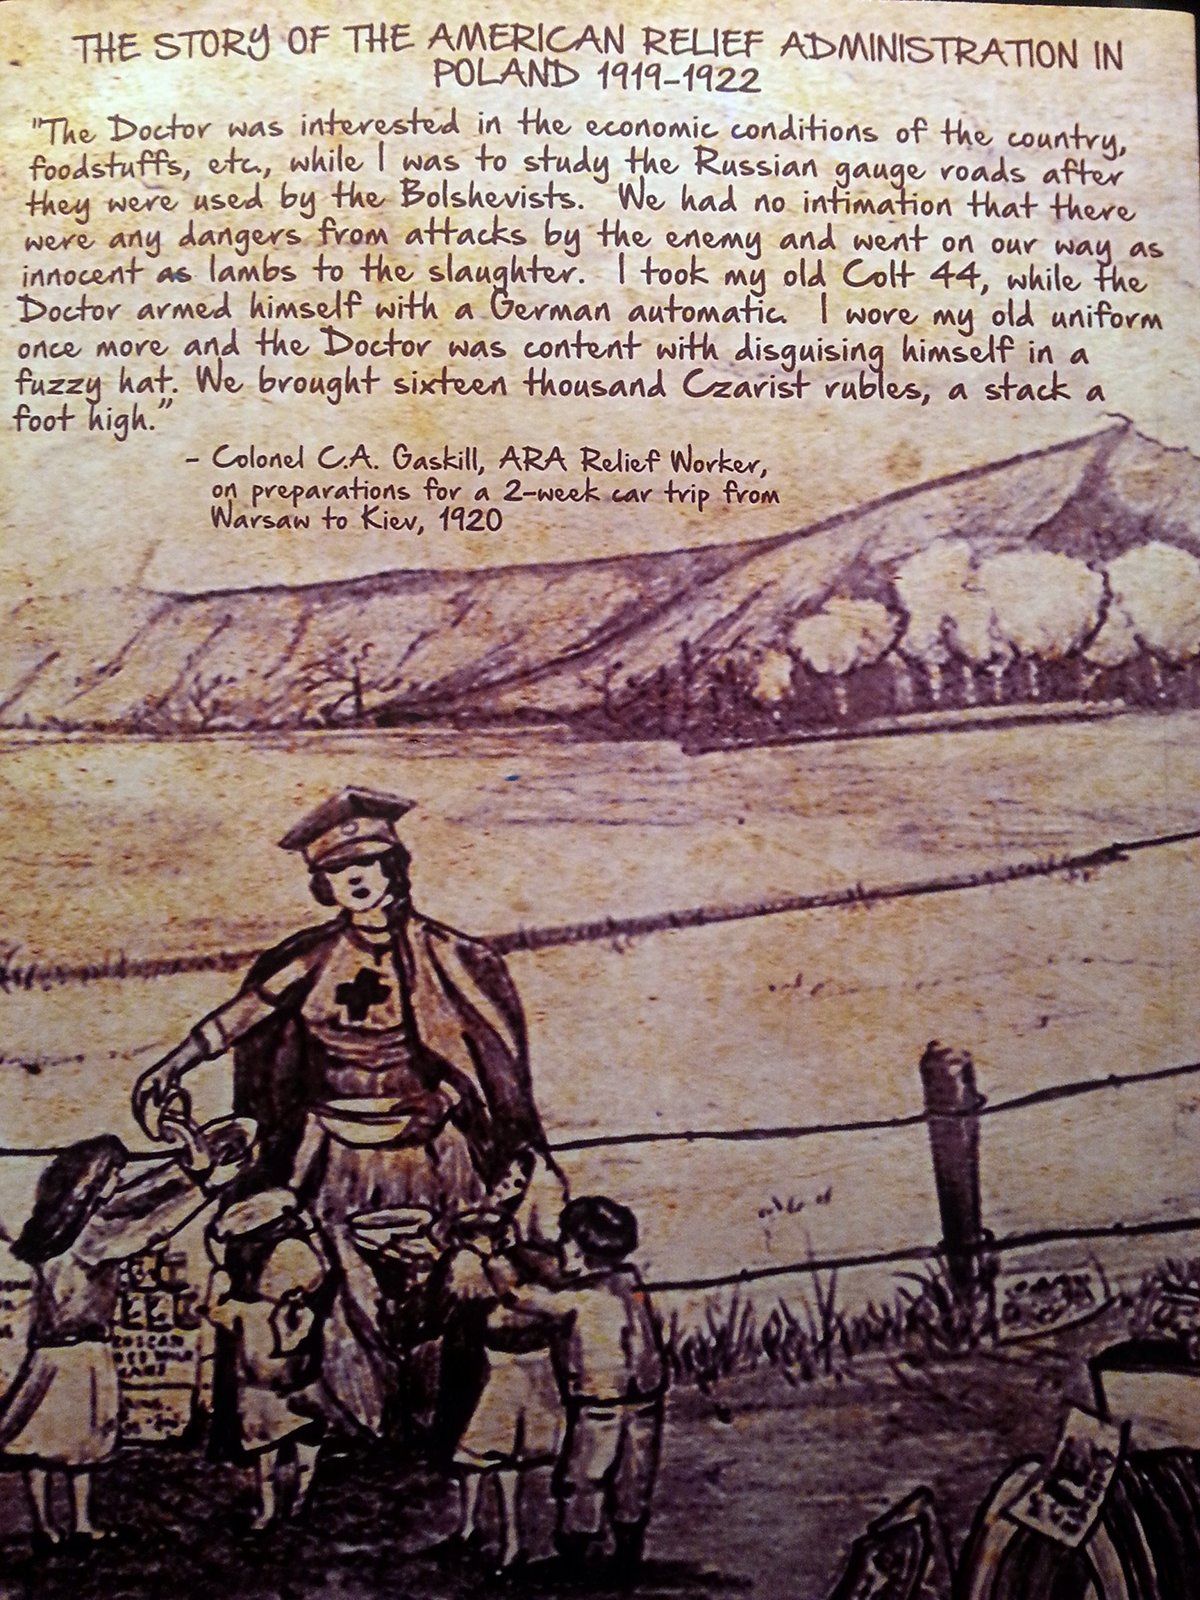 THE STORY OF THE AMERICAN RELIEF ADMINISTRATION IN
POLAND 1919-1922
"The Doctor was interested in the economic conditions of the country,
foodstuffs, etc., while I was to study the Russian gauge roads after
they were used by the Bolshevists. We had no intimation that there
were any dangers from attacks by the enemy and went on our way as
innocent as lambs to the slaughter. I took my old Colt 44, while the
Doctor armed himself with a German automatic. I wore my old uniform
once more and the Doctor was content with disguising himself in a
fuzzy hat. We brought sixteen thousand Czarist rubles, a stack a
foot high."
- Colonel C.A. Gaskill, ARA Relief Worker,
on preparations for a 2-week car trip from
Warsaw to Kiev, 1920